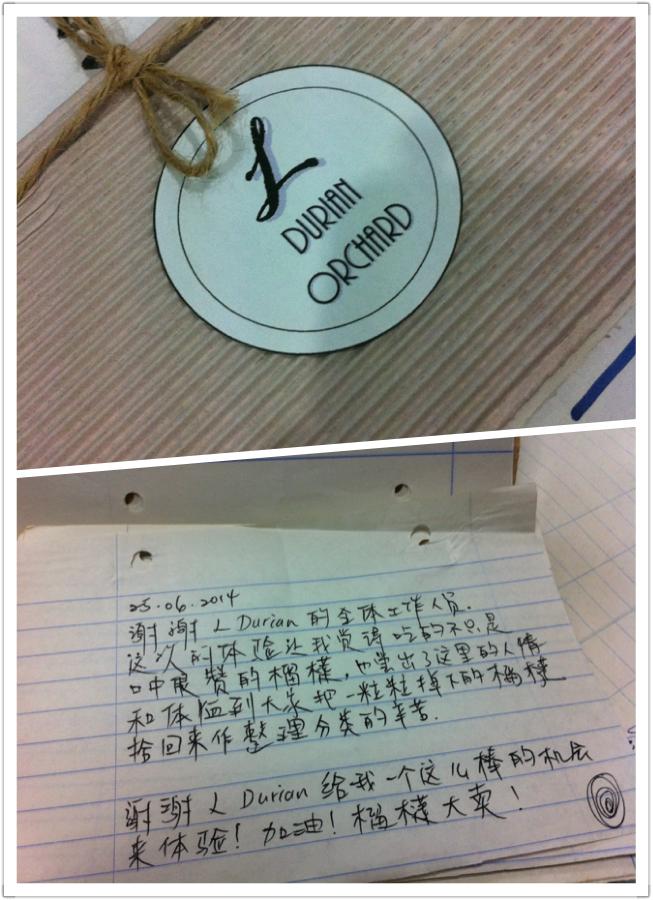 L
DURIAN
ORCHARD
25.06.2014
谢谢 L Durian 的全体工作人员.
这次的体验让我觉得吃的不只是
口中很赞的榴梿，加尝出了这里的人情
和体验到大家把一粒粒掉下的榴梿
拾回来作整理分类的辛苦.
谢谢 L Durian 给我一个这么棒的机会
来体验！加油！榴梿大卖！